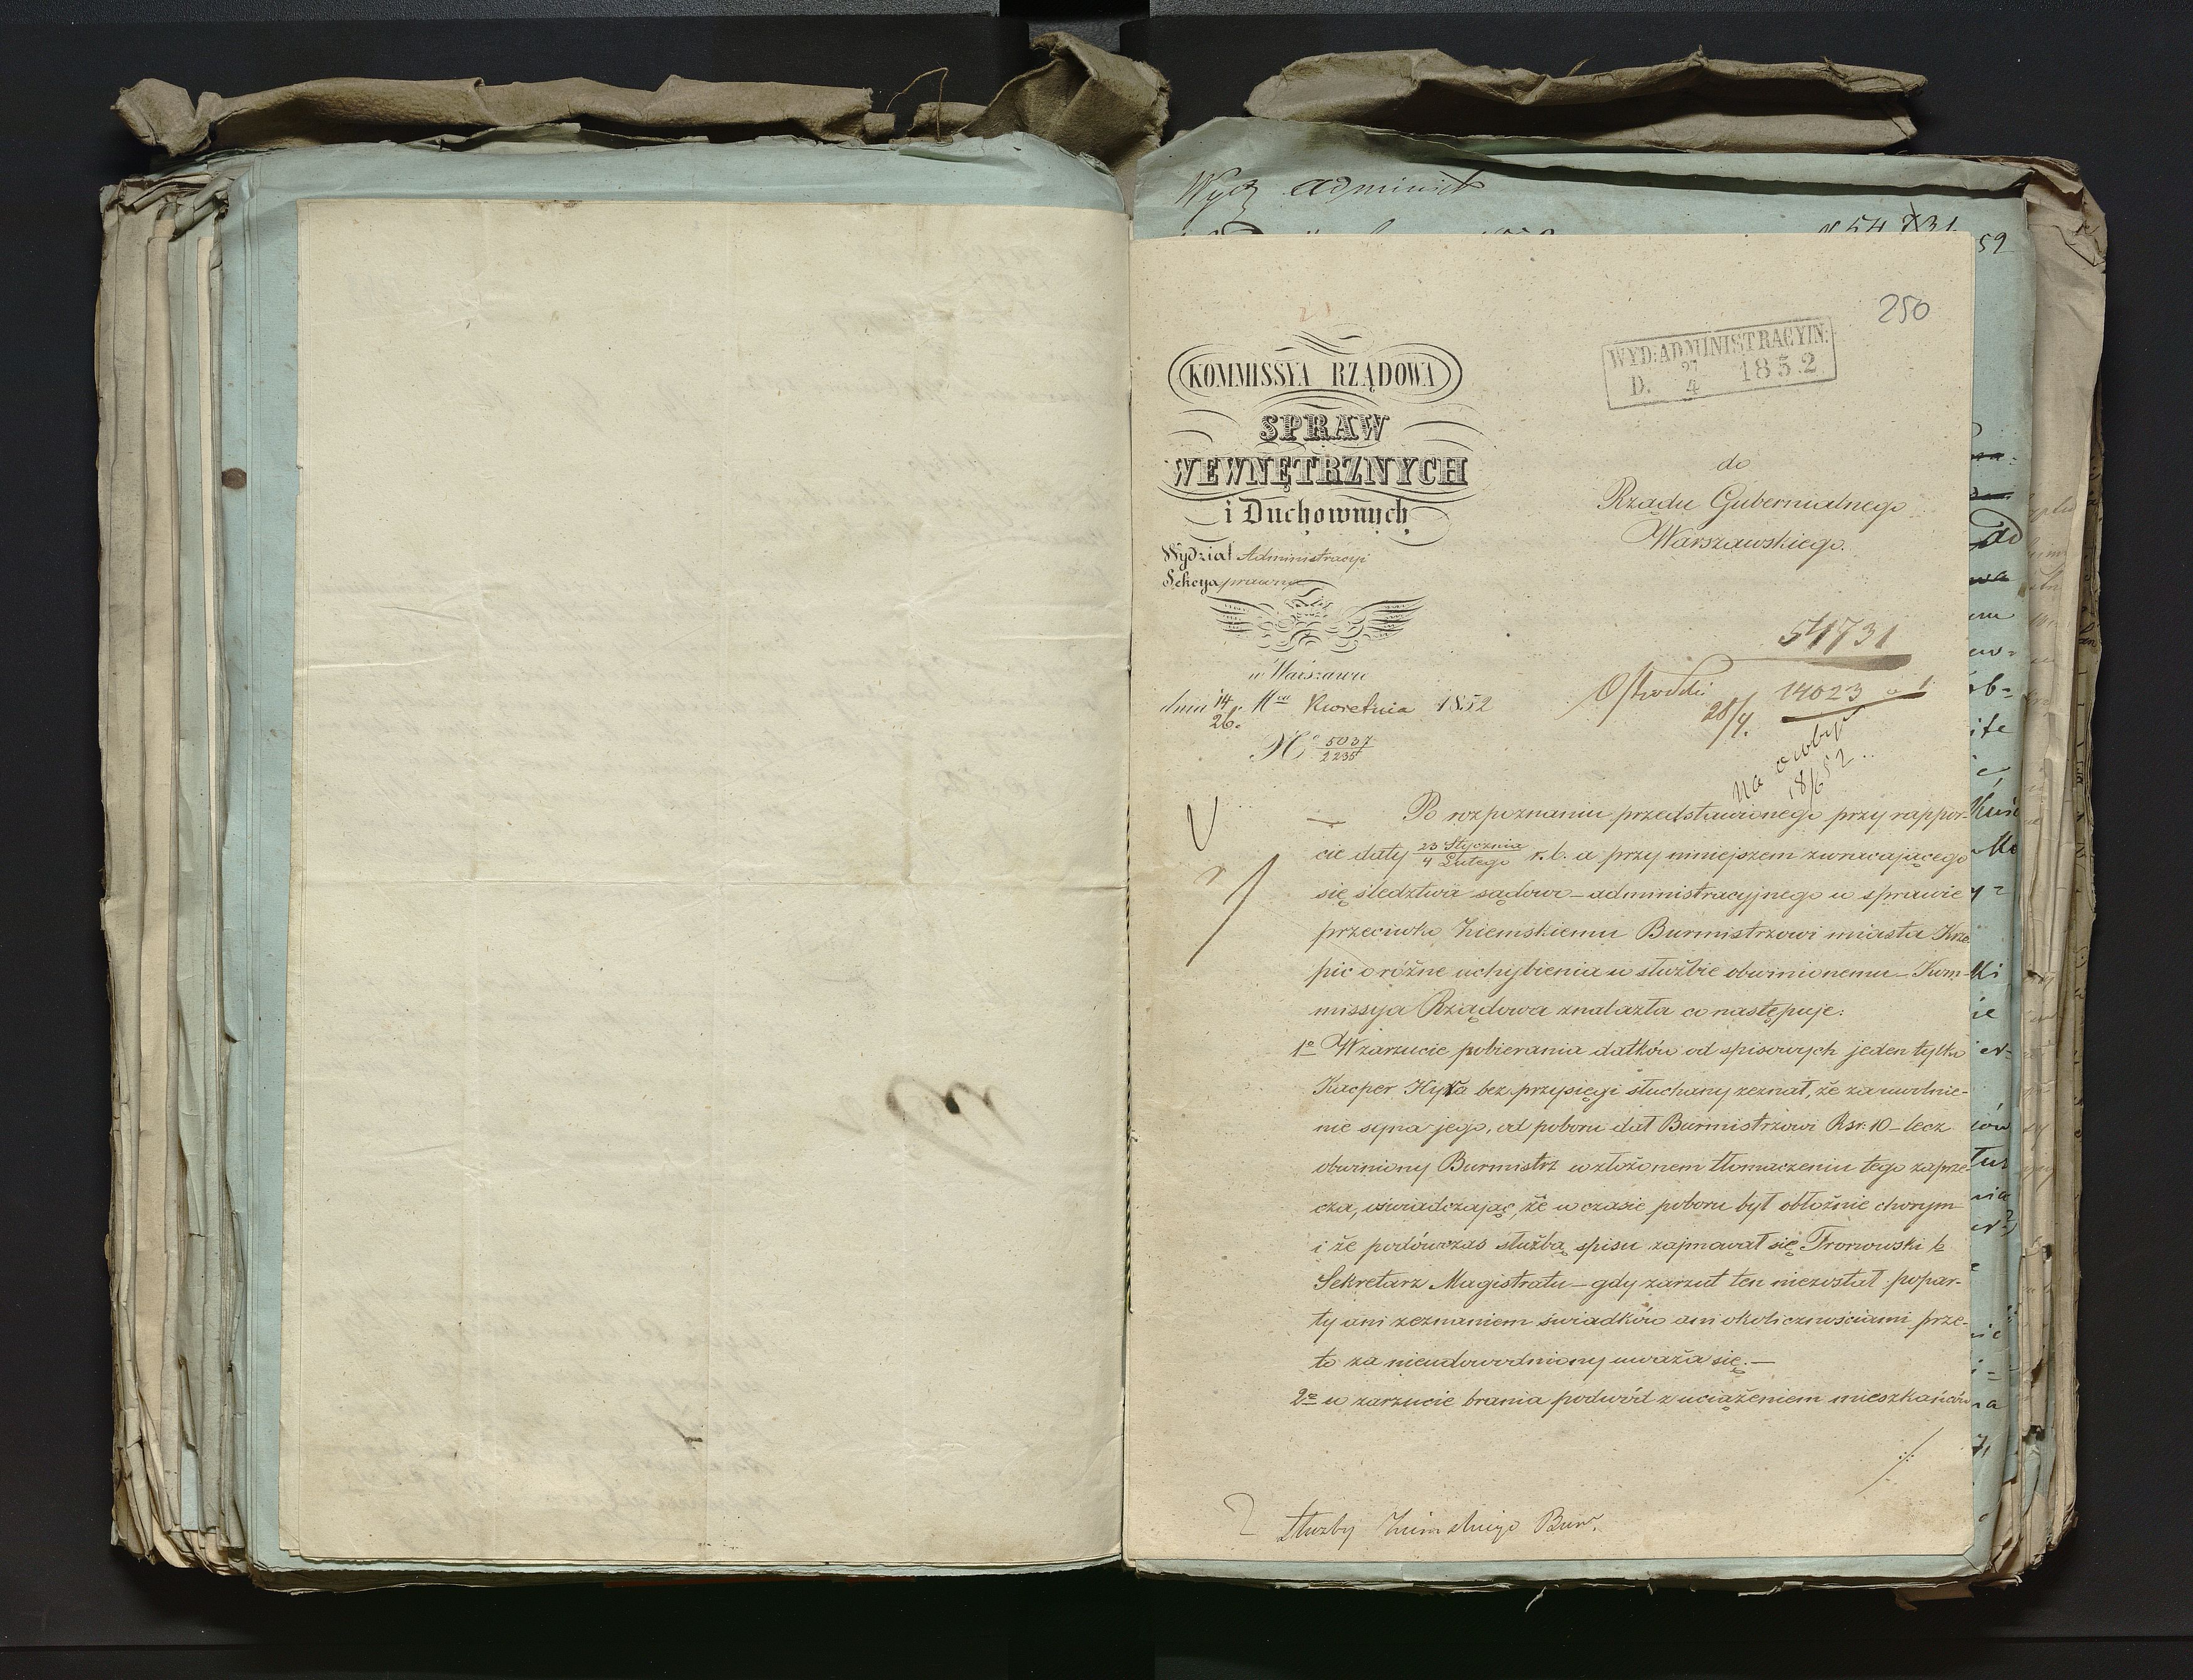 Wydz administr
54731
59
250
WYD: ADMINISTRACYIN:
D. 27/4 1852
KOMMISSYA RZĄDOWA
SPRAW
WEWNĘTRZNYCH
i Duchownych
Wydział Administracyi
Sekcya prawna
w Warszawie
dnia 14/26. Mca Kwietnia 1852
No 5037/2235
do
Rządu Gubernialnego
Warszawskiego.
54731
14023
28/4.
na osoby
18/6 52..
Po rozpoznaniu przedstawionego przy rappor-
cie daty 23 Stycznia/4 Lutego r. b. a przy niniejszem zwracającego
się śledztwa sądowo-administracyjnego w sprawie
przeciwko Ziemskiemu Burmistrzowi miasta Krze
pic o różne uchybienia w służbie obwinionemu - Kom-
missya Rządowa znalazła co następuje:
1o W zarzucie pobierania datków od spisowych jeden tylko
Kacper Hyra bez przysięgi słuchany zeznał, że za uwolnie-
nie syna jego, od poboru dał Burmistrzowi Rsr. 10 - lecz
obwiniony Burmistrz w złożonem tłomaczeniu tego zaprze-
cza, oświadczając, że w czasie poboru był obłożnie chorym
i że podówczas służbą spisu zajmował się Tronowski b
Sekretarz Magistratu - gdy zarzut ten niezostał popar-
ty ani zeznaniem świadków ani okolicznościami prze-
to za nieudowodniony uważa się. -
2o w zarzucie brania podwód z uciążeniem mieszkańców
./.
Służby Ziemskiego Burr.